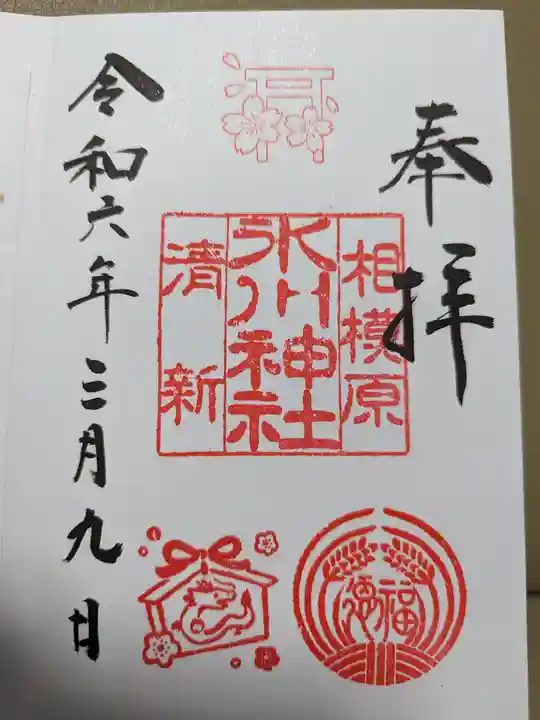 奉拝
相模原
氷川神社
清新
福徳
令和六年三月九日